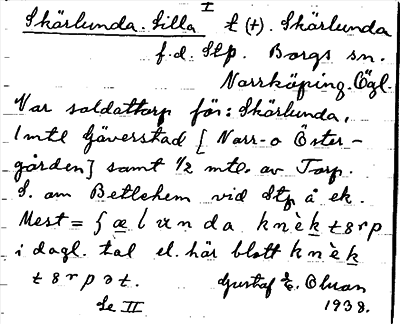 I
Skärlunda. Lilla t (t). Skärlunda
f.d. Stp. Borgs sn.
Norrköping. Ögl.
Var soldattorp för: Skärlunda,
1 mtl Gäverstad [Norr- o Öster-
gården] samt 1/2 mtl. av Torp.
S. om Betlehem vid Stp å ek.
Mest = ʃælunda knèk tɵrp
i dagl. tal el. här blott knèk
tɵrpət. Gustaf E. Olson
Se II 1938.